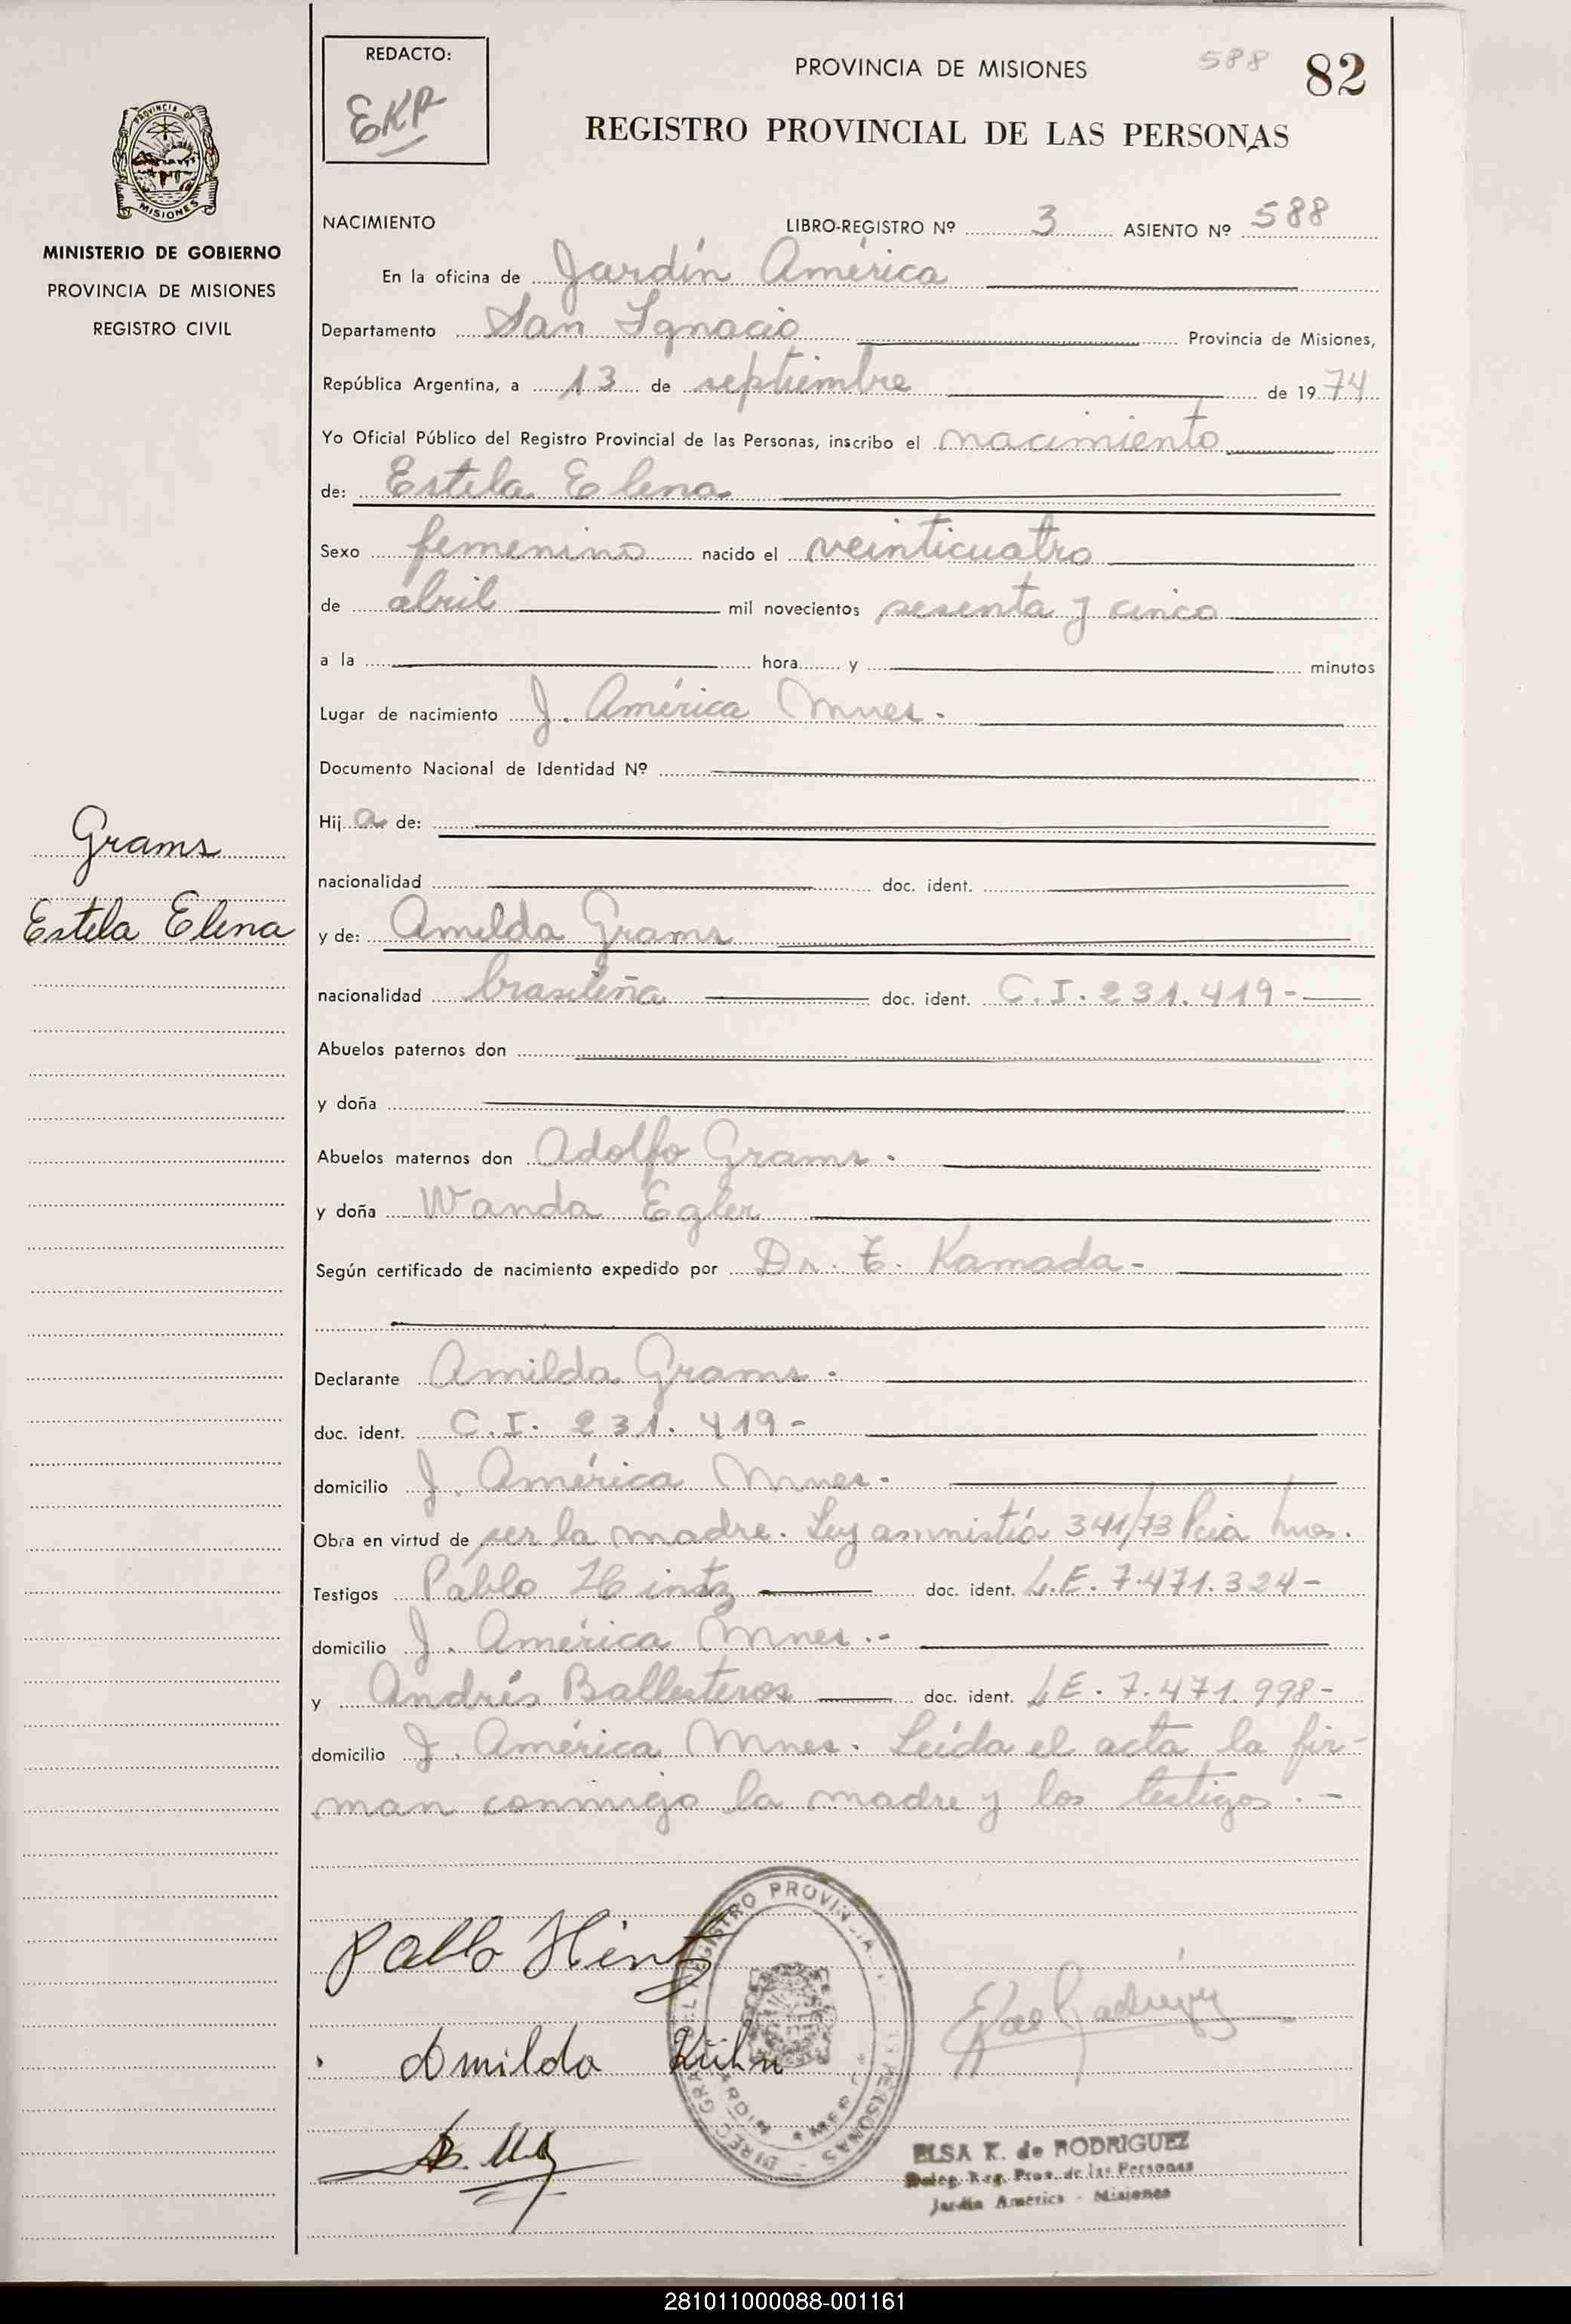 REDACTO:
EKR
PROVINCIA DE MISIONES
588
82
REGISTRO PROVINCIAL DE LAS PERSONAS
MISIONES
MINISTERIO DE GOBIERNO
PROVINCIA DE MISIONES
REGISTRO CIVIL
NACIMIENTO LIBRO-REGISTRO Nº 3 ASIENTO Nº 588
En la oficina de Jardín América
Departamento San Ignacio Provincia de Misiones,
República Argentina, a 13 de septiembre de 1974
Yo Oficial Público del Registro Provincial de las Personas, inscribo el nacimiento
de: Estela Elena
Sexo femenino nacido el veinticuatro
de abril mil novecientos sesenta y cinco
a la hora y minutos
Lugar de nacimiento J. América Mnes.
Documento Nacional de Identidad Nº
Hija de:
nacionalidad doc. ident.
Grams
Estela Elena
y de: Amilda Grams
nacionalidad brasileña doc. ident. C.I. 231.419-
Abuelos paternos don
y doña
Abuelos maternos don Adolfo Grams.
y doña Wanda Egler
Según certificado de nacimiento expedido por Dr. E. Kamada-
Declarante Amilda Grams.
doc. ident. C.I. 231.419-
domicilio J. América Mnes.
Obra en virtud de ser la madre. Ley amnistía 341/73 Pcia Mnes.
Testigos Pablo Hintz doc. ident. L.E. 7.471.324-
domicilio J. América Mnes.-
y Andrés Ballesteros doc. ident. L.E. 7.471.998-
domicilio J. América Mnes. Leída el acta la fir-
man conmigo la madre y los testigos.-
Pablo Hintz
Amilda Kühn
ELSA K. de RODRIGUEZ
Deleg. Reg. Prov. de las Personas
Jardín América - Misiones
281011000088-001161